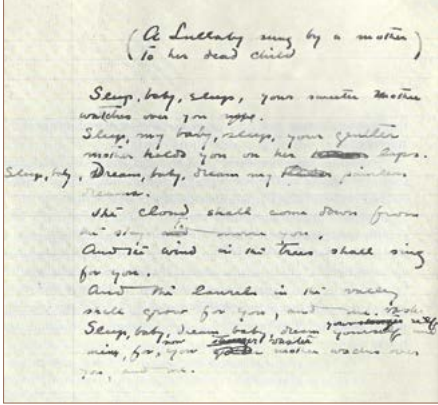 (A Lullaby sung by a mother
to her dead child)
Sleep, baby, sleep, your sweeter mother
watches over you now.
Sleep, my baby, sleep, your gentler
mother holds you on her laps.
Sleep, baby, Dream, baby, dream my painless
dreams.
The cloud shall come down from
the sky and you.
And the wind in the trees shall sing
for you.
And the laurels in the valley
shall grow for you, and me.
Sleep, baby, dream, baby, dream yourself
for, your mother watches over
you, and me.